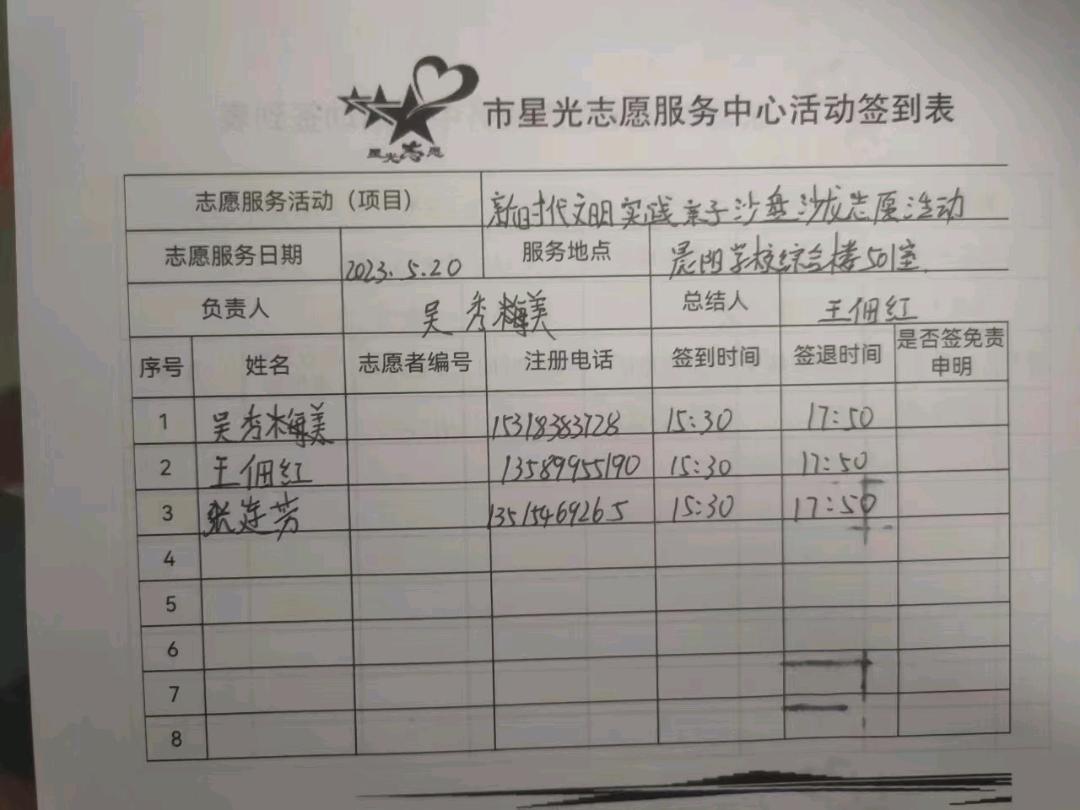 市星光志愿服务中心活动签到表
星光志愿
志愿服务活动（项目） 新时代文明实践亲子沙盘沙龙志愿活动
志愿服务日期 2023.5.20 服务地点 晨阳学校综合楼501室
负责人 吴秀梅美 总结人 王佃红
序号 姓名 志愿者编号 注册电话 签到时间 签退时间 是否签免责申明
1 吴秀梅美 15318383728 15:30 17:50
2 王佃红 13589955190 15:30 17:50
3 张连芳 13515469265 15:30 17:50
4
5
6
7
8